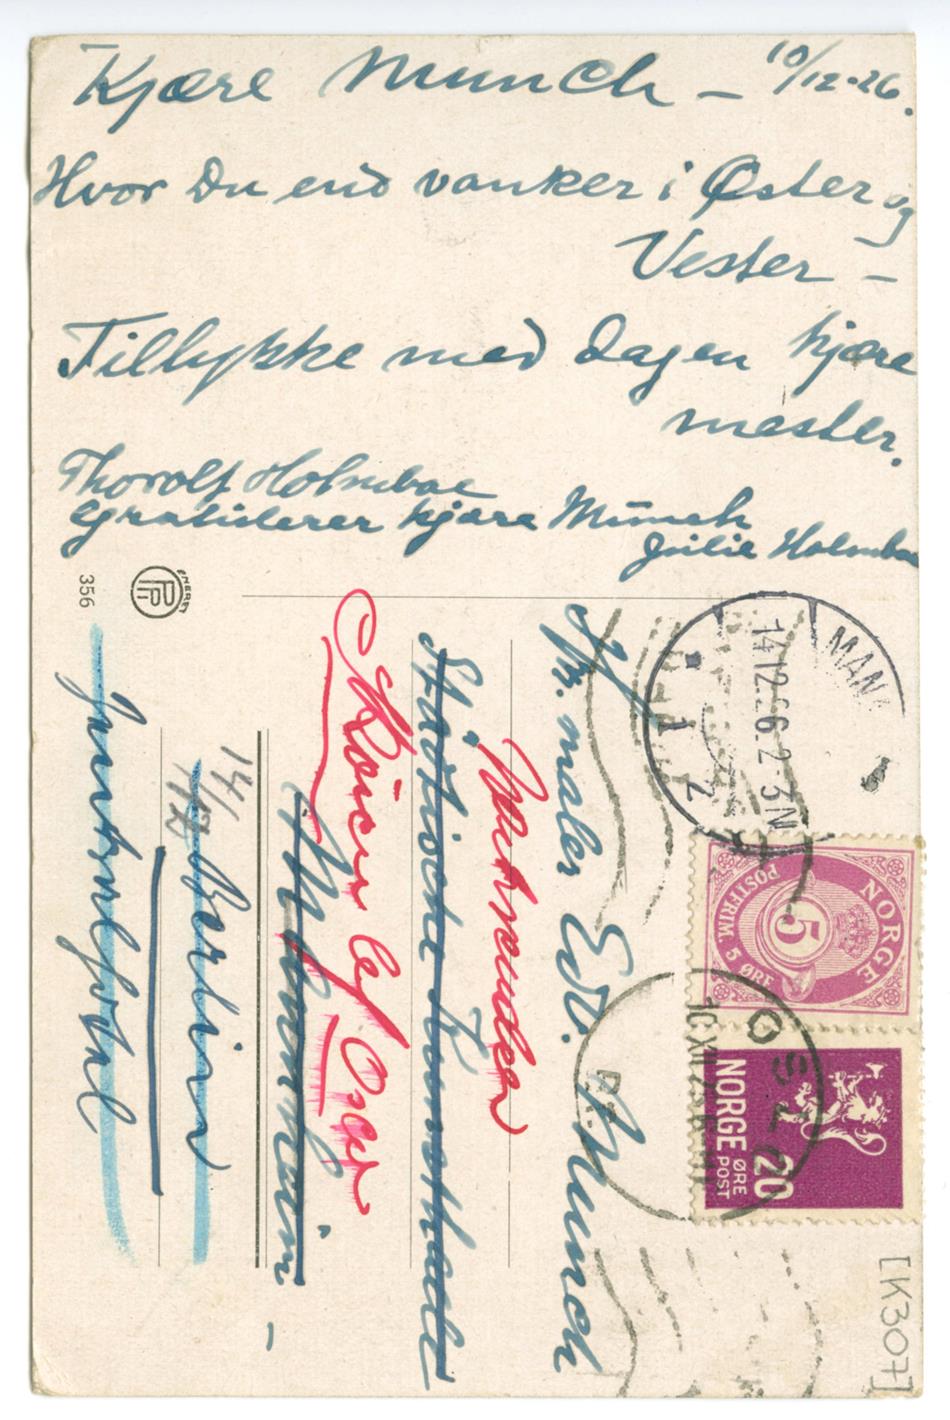 Kjære Munch – 10/12-26.
Hvor Du end vanker i Øster og
Vester –
Tillykke med dagen kjære
mester.
Thorolf Holmboe
Gratulerer kjære Munch
Julie Holmboe
356
ENERET
Hr. maler Edv. Munch
Städtische Kunsthalle
Mannheim –
Skøien
Oslo
14/12
Berlin
MAN
14.12.26.2-3N
NORGE
POSTFRIM. 5 ØRE
5
OSLO
10 XII 26
NORGE
20
ØRE
POST
[K307]